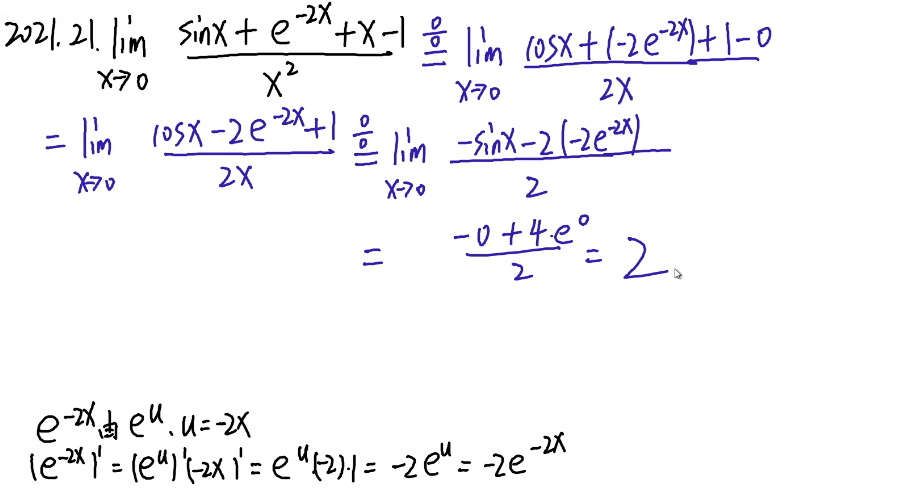 2021.21. lim x→0 (sinx + e^{-2x} + x - 1)/x² \overset{0/0}{=} lim x→0 (cosx + (-2e^{-2x}) + 1 - 0)/2x
= lim x→0 (cosx - 2e^{-2x} + 1)/2x \overset{0/0}{=} lim x→0 (-sinx - 2(-2e^{-2x}))/2
= (-0 + 4·e⁰)/2 = 2
e^{-2x}由e^u. u = -2x
(e^{-2x})' = (e^u)'(-2x)' = e^u(-2)·1 = -2e^u = -2e^{-2x}